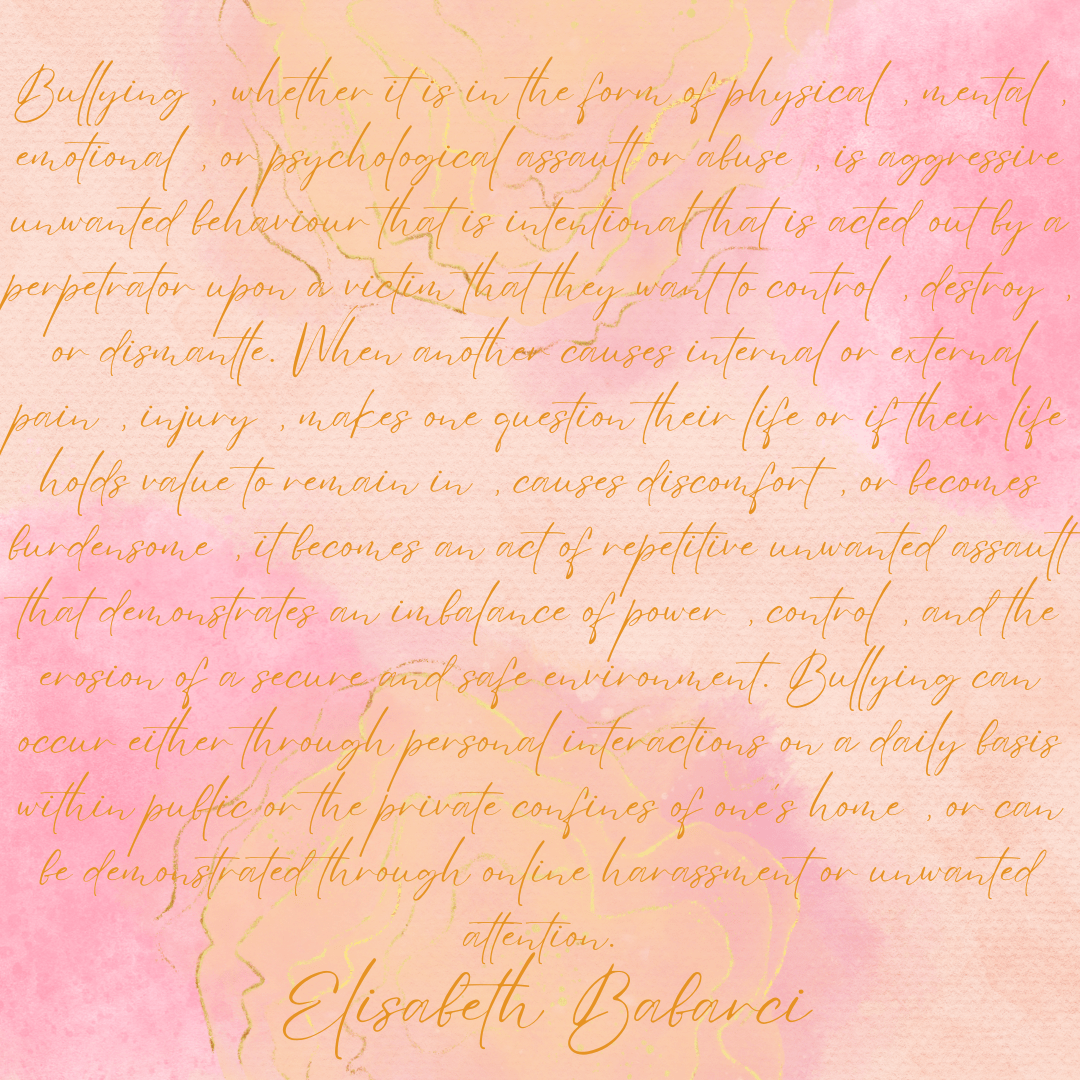 Bullying , whether it is in the form of physical , mental ,
emotional , or psychological assault or abuse , is aggressive
unwanted behaviour that is intentional that is acted out by a
perpetrator upon a victim that they want to control , destroy ,
or dismantle. When another causes internal or external
pain , injury , makes one question their life or if their life
holds value to remain in , causes discomfort , or becomes
burdensome , it becomes an act of repetitive unwanted assault
that demonstrates an imbalance of power , control , and the
erosion of a secure and safe environment. Bullying can
occur either through personal interactions on a daily basis
within public or the private confines of one's home , or can
be demonstrated through online harassment or unwanted
attention.
Elisabeth Babarci